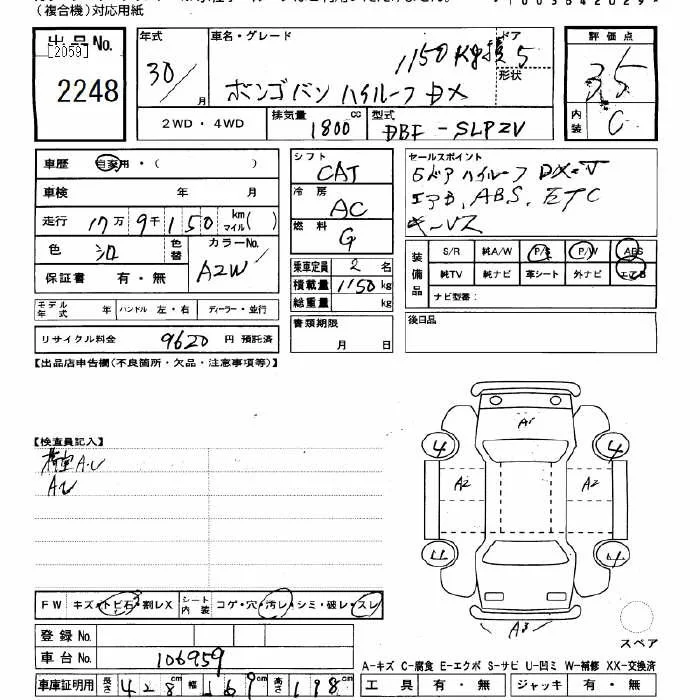 (複合機)対応用紙
出品No.
[2059]
2248
年式
30/
月
車名・グレード
1150Kg積
ドア
形状
5
ボンゴバン ハイルーフ DX
2WD・4WD
排気量
1800
cc
型式
DBF-SLP2V
評価点
3.5
内装
C
車歴
自家用・( )
車検
年 月
走行
17万9千150
km
マイル
( )
色
シロ
色替
カラーNo.
A2W
保証書
有・無
モデル年式
年
ハンドル
左・右
ディーラー・並行
リサイクル料金
9620
円 預託済
シフト
CAT
冷房
AC
燃料
G
乗車定員
2
名
積載量
1150
kg
総重量
kg
書類期限
月 日
セールスポイント
5ドア ハイルーフ DX-
エアB, ABS, ETC
キーレス
装備品
S/R
純A/W
P/S
P/W
ABS
純TV
純ナビ
革シート
外ナビ
エアB
ナビ型番:
後日品
【出品店申告欄(不良箇所・欠品・注意事項等)】
【検査員記入】
荷室A・U
AU
A1
4
4
A2
A2
4
4
A3
スペア
FW
キズ・トビ石・割レX
シート内装
コゲ・穴・汚レ・シミ・破レ・スレ
登録No.
車台No.
106959
車庫証明用
長さ
428
cm
幅
169
cm
高さ
198
cm
A-キズ C-腐食 E-エクボ S-サビ U-凹ミ W-補修 XX-交換済
工具
有・無
ジャッキ
有・無